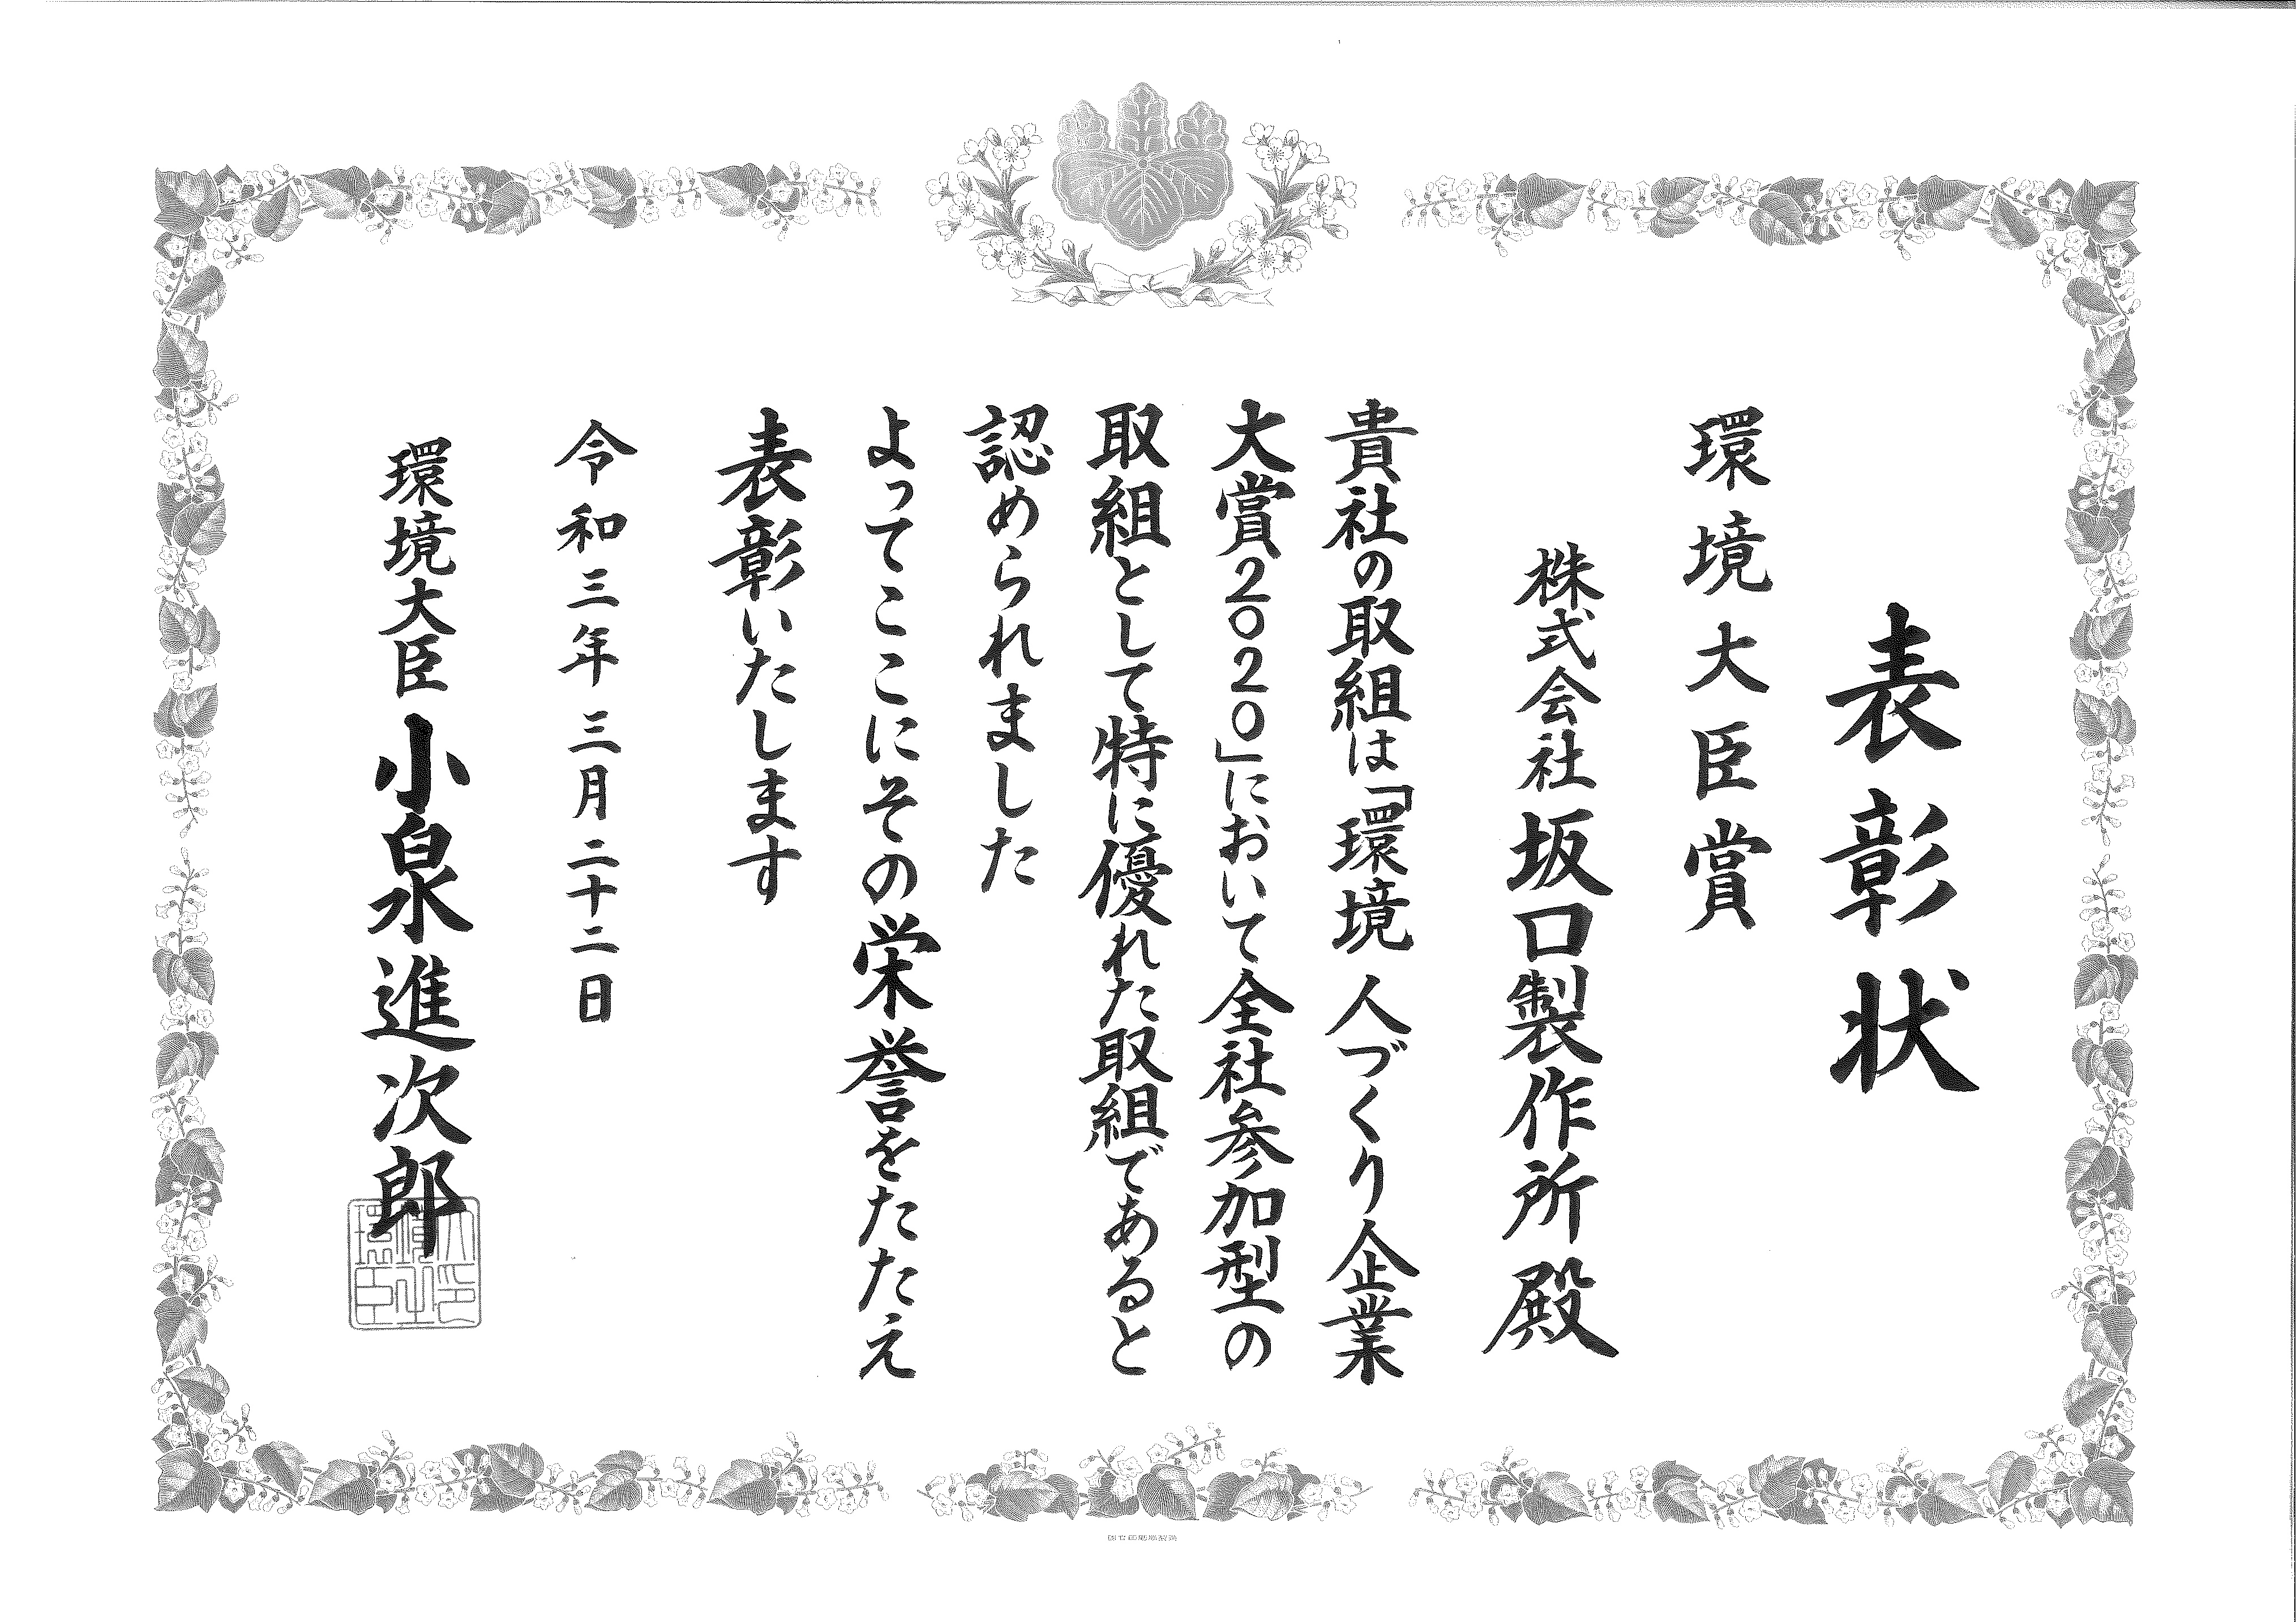 表彰状
環境大臣賞
株式会社坂口製作所殿
貴社の取組は「環境 人づくり企業
大賞2020」において全社参加型の
取組として特に優れた取組であると
認められました
よってここにその栄誉をたたえ
表彰いたします
令和三年三月二十二日
環境大臣 小泉進次郎